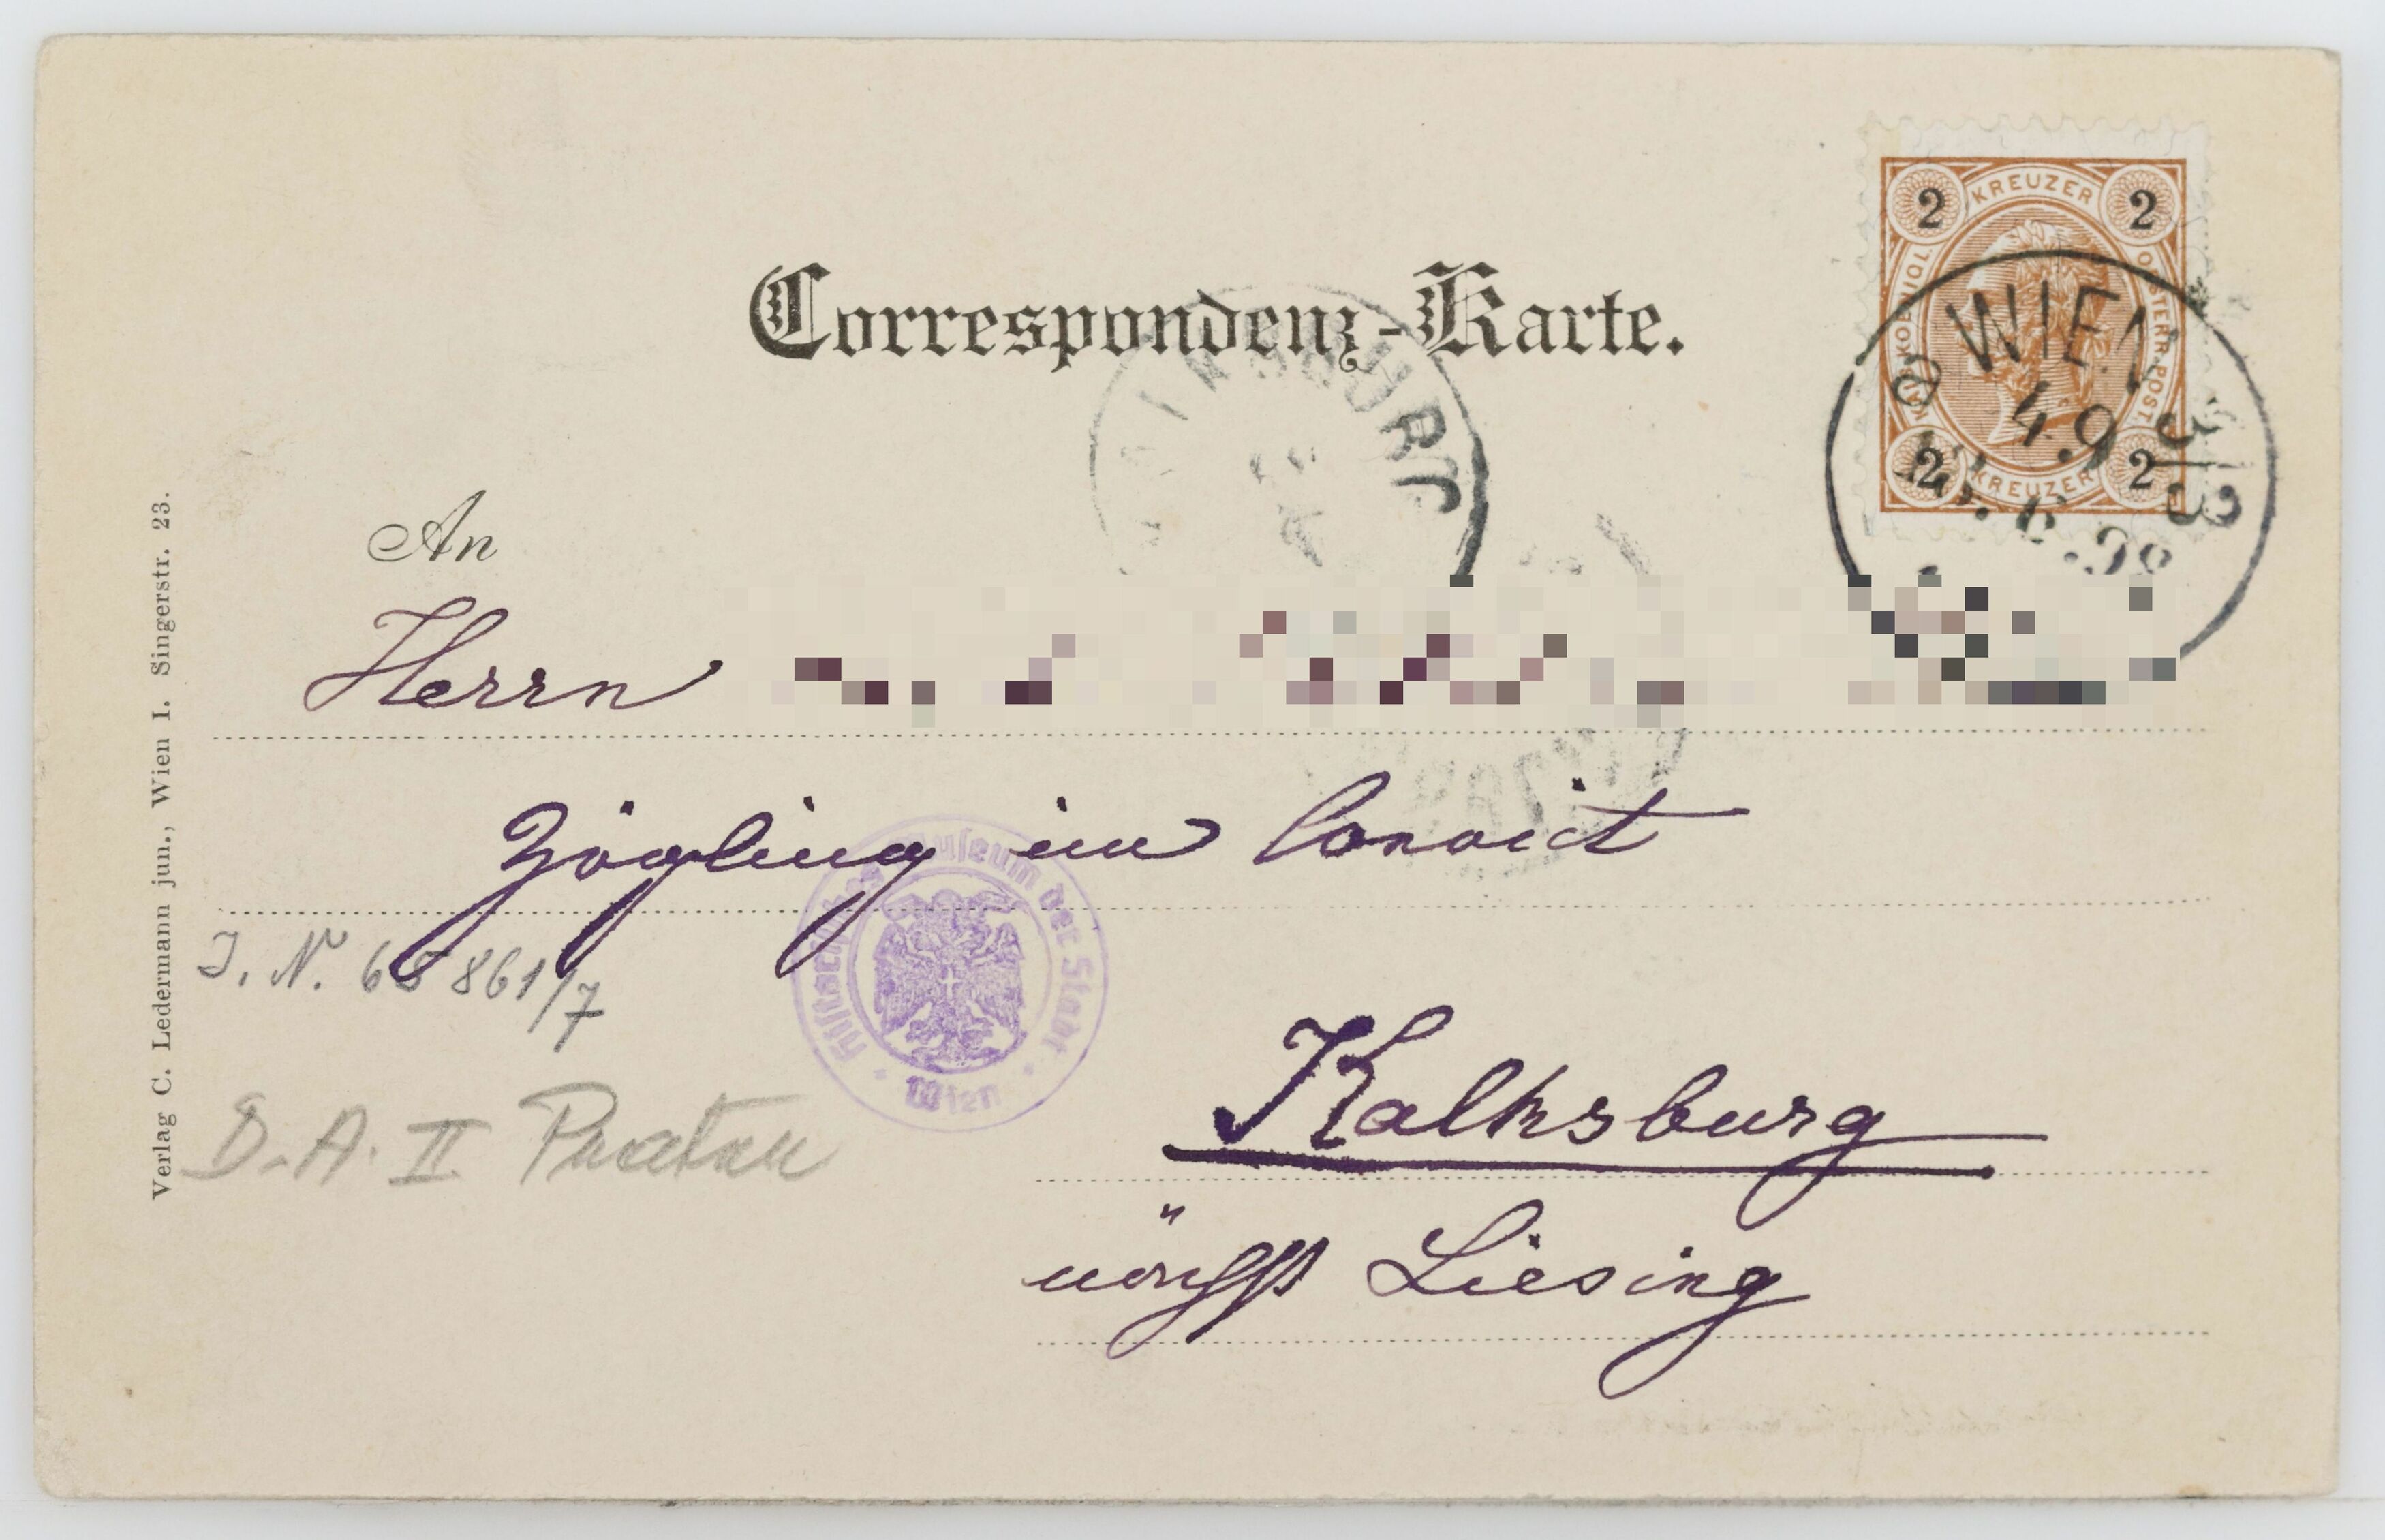 Correspondenz-Karte.
KREUZER
2 2
KAIS. KOENIGL. OESTERR. POST.
2 2
KREUZER
WIEN
4.9
3/3
8
6.98
An
Herrn
Zögling im Convict
Kalksburg
nächst Liesing
J. N. 68861/7
D. A. II Praten
Museum der Stadt
Wien
Verlag C. Ledermann jun., Wien I. Singerstr. 23.